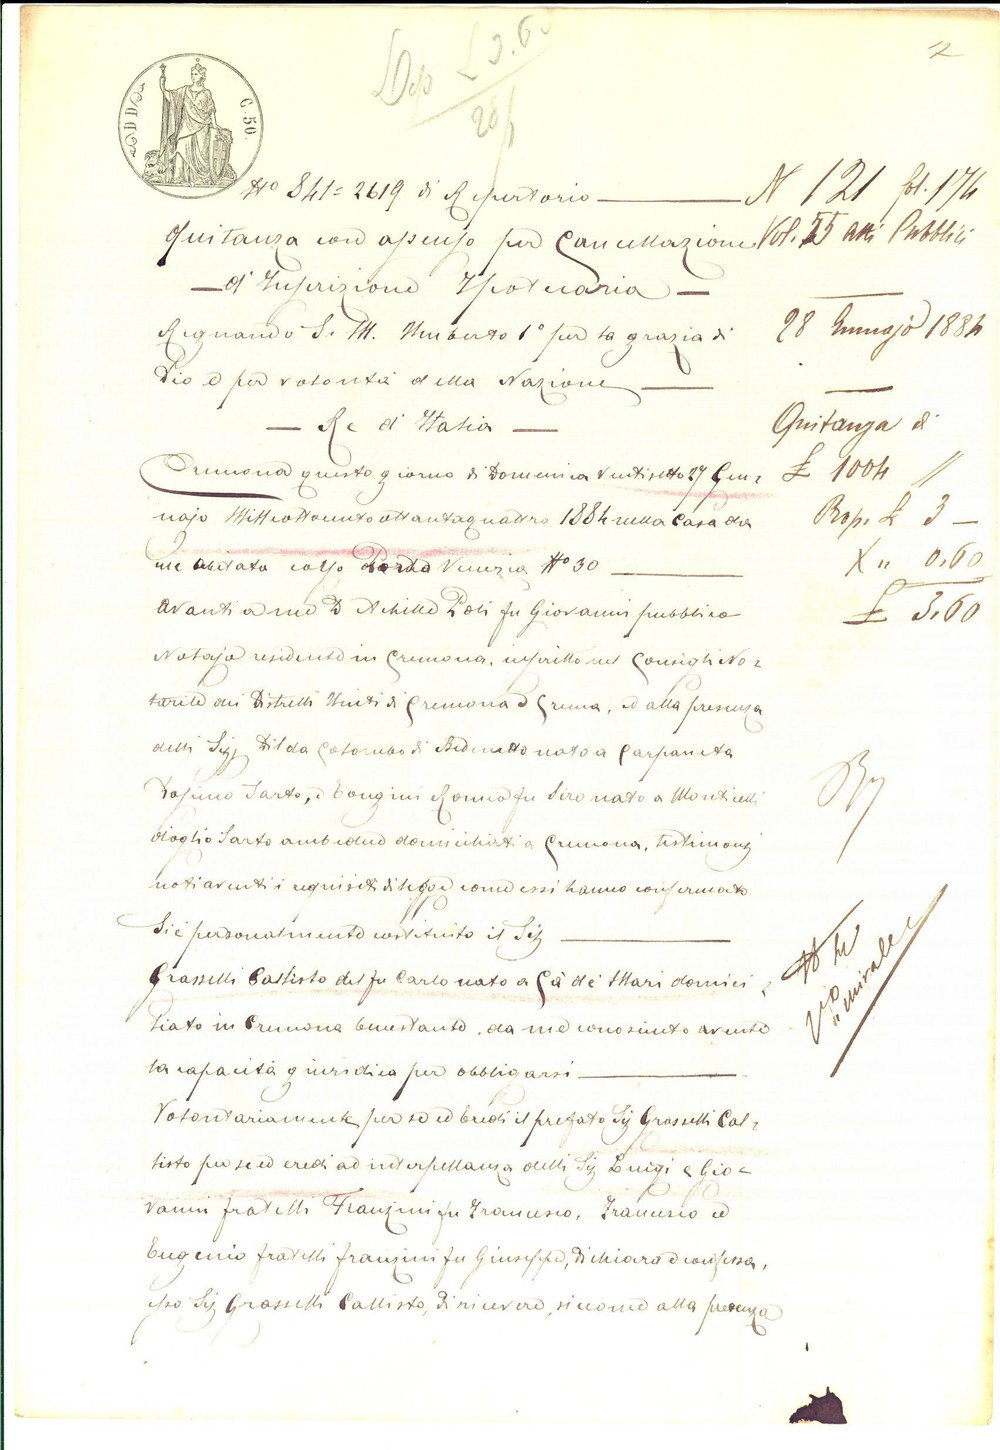 2
Dep £ 3.60
28/1
C. 50.
N° 841=2619 di Repertorio
Quitanza con assenso per Cancellazione
d'Inscrizione Ipotecaria
Regnando S. M. Umberto 1° per la grazia di
Dio e per volontà della Nazione
Re d'Italia
Cremona questo giorno di Domenica ventisette 27 Gen=
najo Milleottocentottantaquattro 1884 nella casa da
me abitata corso Porta Venezia N° 30
Avanti a me D. Achille Poli fu Giovanni pubblico
Notajo residente in Cremona, inscritto nel Consiglio No=
tarile dei Distretti Uniti di Cremona e Crema, ed alla presenza
delli Sigg. Dilda Colombo di Benedetto nato a Carpaneta
Dosimo Sarto, e Bongini Romeo fu Siro nato a Monticelli
d'oglio Sarto ambedue domiciliati a Cremona, testimonj
noti aventi i requisiti di legge come essi hanno confermato
Si è personalmente costituito il Sig.
Grasselli Callisto del fu Carlo nato a Cà de' Mari domici
liato in Cremona benestante, da me conosciuto avente
la capacità giuridica per obbligarsi
Volontariamente per se ed Eredi il prefato Sig. Grasselli Cal=
listo per se ed eredi ad interpellanza delli Sig. Luigi e Gio=
vanni fratelli Franzini fu Francesco, Francesco ed
Eugenio fratelli Franzini fu Giuseppe, dichiara e confessa,
esso Sig. Grasselli Callisto, di ricevere, siccome alla presenza
N 121 fol. 174
Vol. 55 atti Pubblici
28 Gennajo 1884
Quitanza di
£ 1004 //
Prop. £ 3 —
X " 0,60
£ 3,60